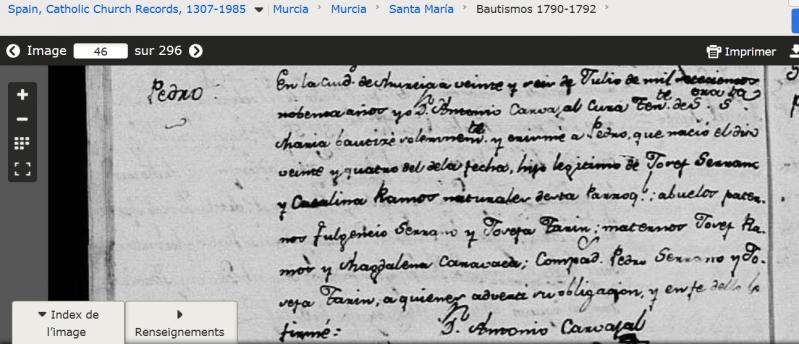 Spain, Catholic Church Records, 1307-1985 Murcia Murcia Santa María Bautismos 1790-1792
Image 46 sur 296 Imprimer
Pedro
En la Ciud. de Murcia a veinte y seis de Julio de mil setecientos
nobenta años yo D. Antonio Carvajal Cura Ten.te de S.
Maria bautizé solemnem.te y crismé a Pedro, que nació el dia
veinte y quatro del dela fecha, hijo legitimo de Josef Serrano
y Catalina Ramos naturales desta Parroq.l; abuelos pater.
nos Fulgencio Serrano y Josefa Tarin; maternos Josef Ra.
mos y Magdalena Caravaca; Compad. Pedro Serrano y Jo.
sefa Tarin, a quienes advertí su obligazon, y en fe dello lo
firmé: D. Antonio Carvajal
Index de
l'image
Renseignements